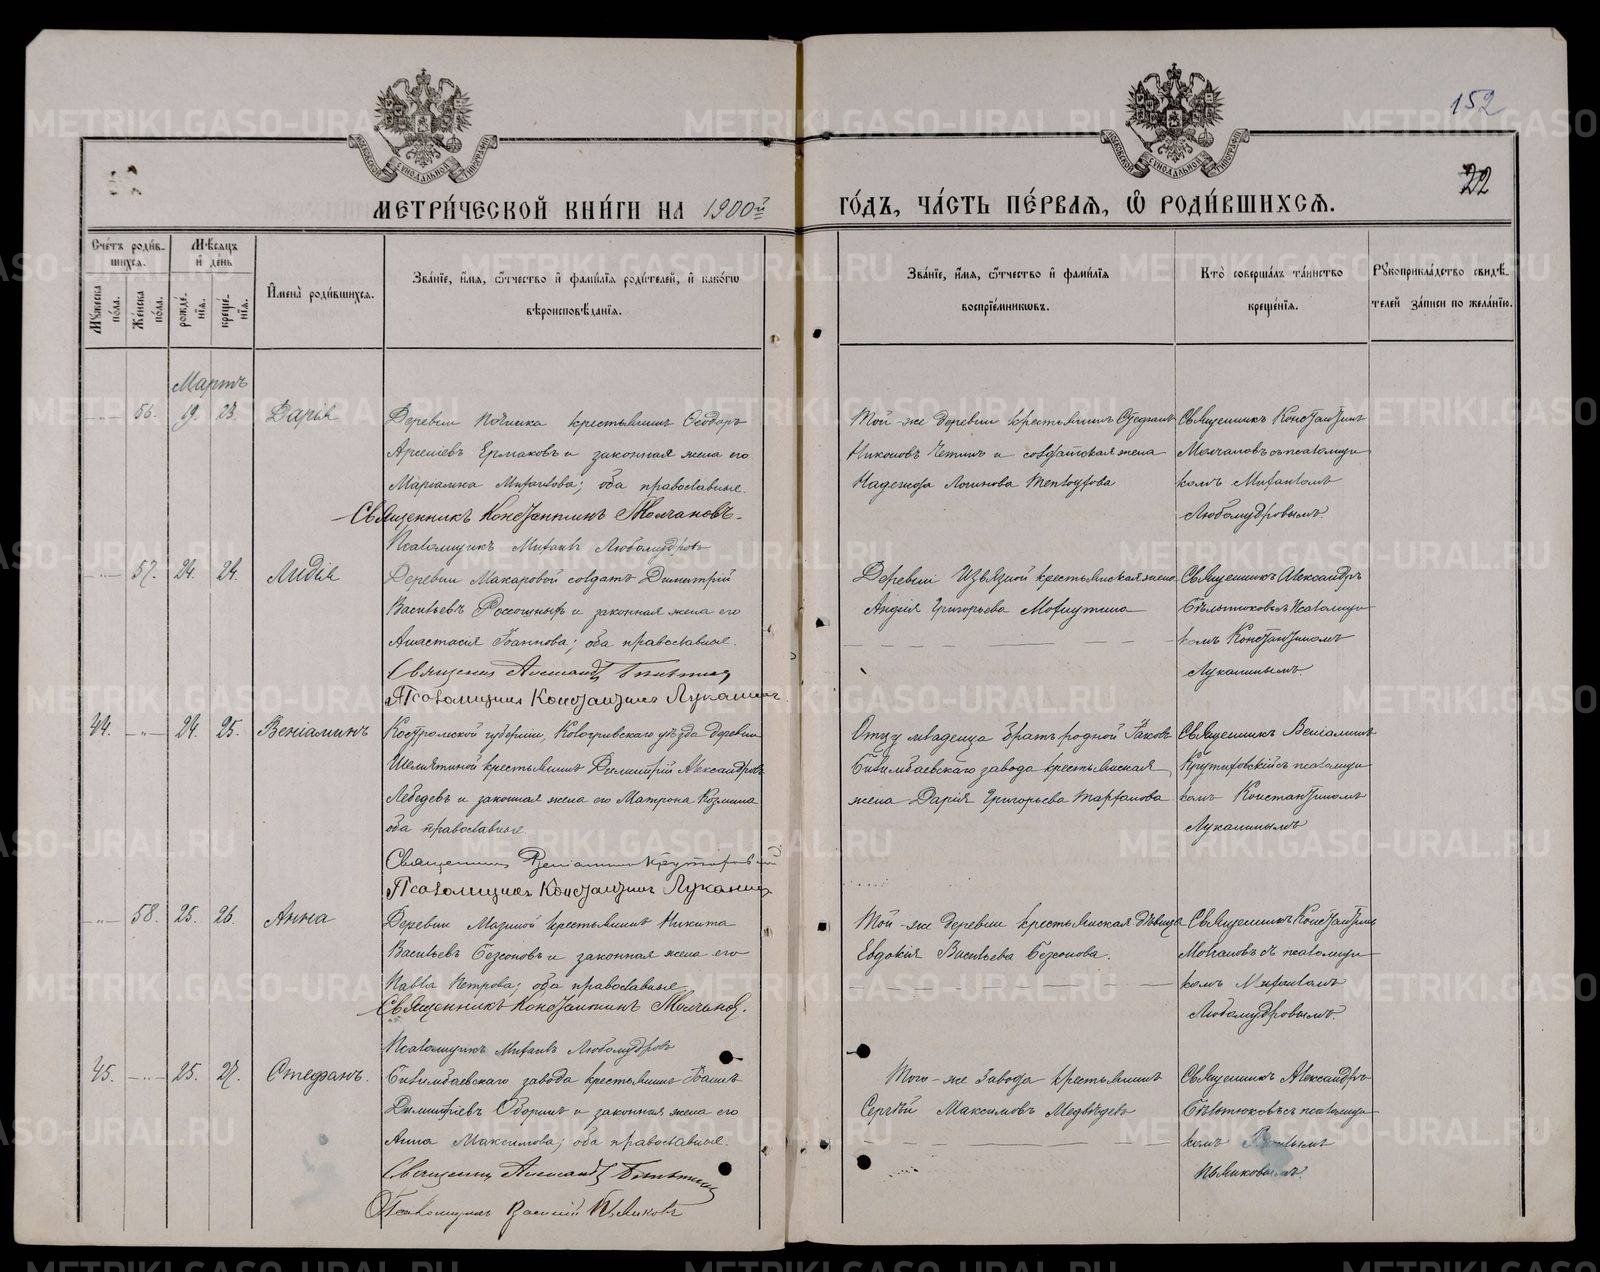 152
22
МЕТРИ́ЧЕСКОЙ КНИ́ГИ НА 1900й
ГО́ДЪ, ЧА́СТЬ ПЕ́РВАЯ, Ѡ РОДИ́ВШИХСЯ.
Сче́тъ роди́в-
шихся.
Му́жеска по́ла.
Же́нска по́ла.
Мѣ́сяцъ
и де́нь
рожде́-
нїя.
креще́-
нїя.
Имена̀ роди́вшихся.
Зва́нїе, и́мя, о́тчество и фами́лїя роди́телей, и како́гѡ
вѣроисповѣ́данїя.
Зва́нїе, и́мя, о́тчество и фами́лїя
воспрїе́мниковъ.
Кто̀ соверша́лъ та́инство
креще́нїя.
Рукоприкла́дство свидѣ́-
телей за́писи по жела́нїю.
Мартъ
56. 19. 23. Дарія
Деревни Починка крестьянинъ Ѳеодоръ
Арсеніевъ Ермаковъ и законная жена его
Маріамна Михаилова; оба православные.
Священникъ Константинъ Молчановъ.
Псаломщикъ Михаилъ Любомудровъ
Той-же деревни крестьянинъ Стефанъ
Никоновъ и солдатская жена
Надежда Логинова
Священникъ Константинъ
Молчановъ съ псаломщи-
комъ Михаиломъ
Любомудровымъ.
57. 24. 24. Лидія
Деревни Макаровой солдатъ Димитрій
Васильевъ и законная жена его
Анастасія Іоаннова; оба православные.
Священникъ Александръ
Псаломщикъ Константинъ Луканинъ.
Деревни Извязной крестьянская жена
Андрія Григорьева
Священникъ Александръ
Бѣльтюковъ съ псаломщи-
комъ Константиномъ
Луканинымъ.
44. 24. 25. Веніаминъ
Костромской губерніи, Кологривскаго уѣзда деревни
Шелятиной крестьянинъ Димитрій Александровъ
Лебедевъ и законная жена его Матрона Козмина
оба православные.
Священникъ Веніаминъ Крутиховскій
Псаломщикъ Константинъ Луканинъ
Отцу младенца братъ родной Іаковъ
Билимбаевскаго завода крестьянская
жена Дарія Григорьева
Священникъ Веніаминъ
Крутиховскій съ псаломщи-
комъ Константиномъ
Луканинымъ
58. 25. 26. Анна
Деревни Мазиной крестьянинъ Никита
Васильевъ Безсоновъ и законная жена его
Павла Петрова; оба православные.
Священникъ Константинъ Молчановъ.
Псаломщикъ Михаилъ Любомудровъ
Той-же деревни крестьянская дѣвица
Евдокія Васильева Безсонова.
Священникъ Константинъ
Молчановъ съ псаломщи-
комъ Михаиломъ
Любомудровымъ.
45. 25. 27. Стефанъ.
Билимбаевскаго завода крестьянинъ Іоаннъ
Димитріевъ Оборинъ и законная жена его
Анна Максимова; оба православные.
Священникъ Александръ
Псаломщикъ Василій Пьянковъ
Того-же завода крестьянинъ
Сергѣй Максимовъ Медвѣдевъ
Священникъ Александръ
Бѣльтюковъ съ псаломщи-
комъ Василіемъ
Пьянковымъ.
METRIKI.GASO-URAL.RU